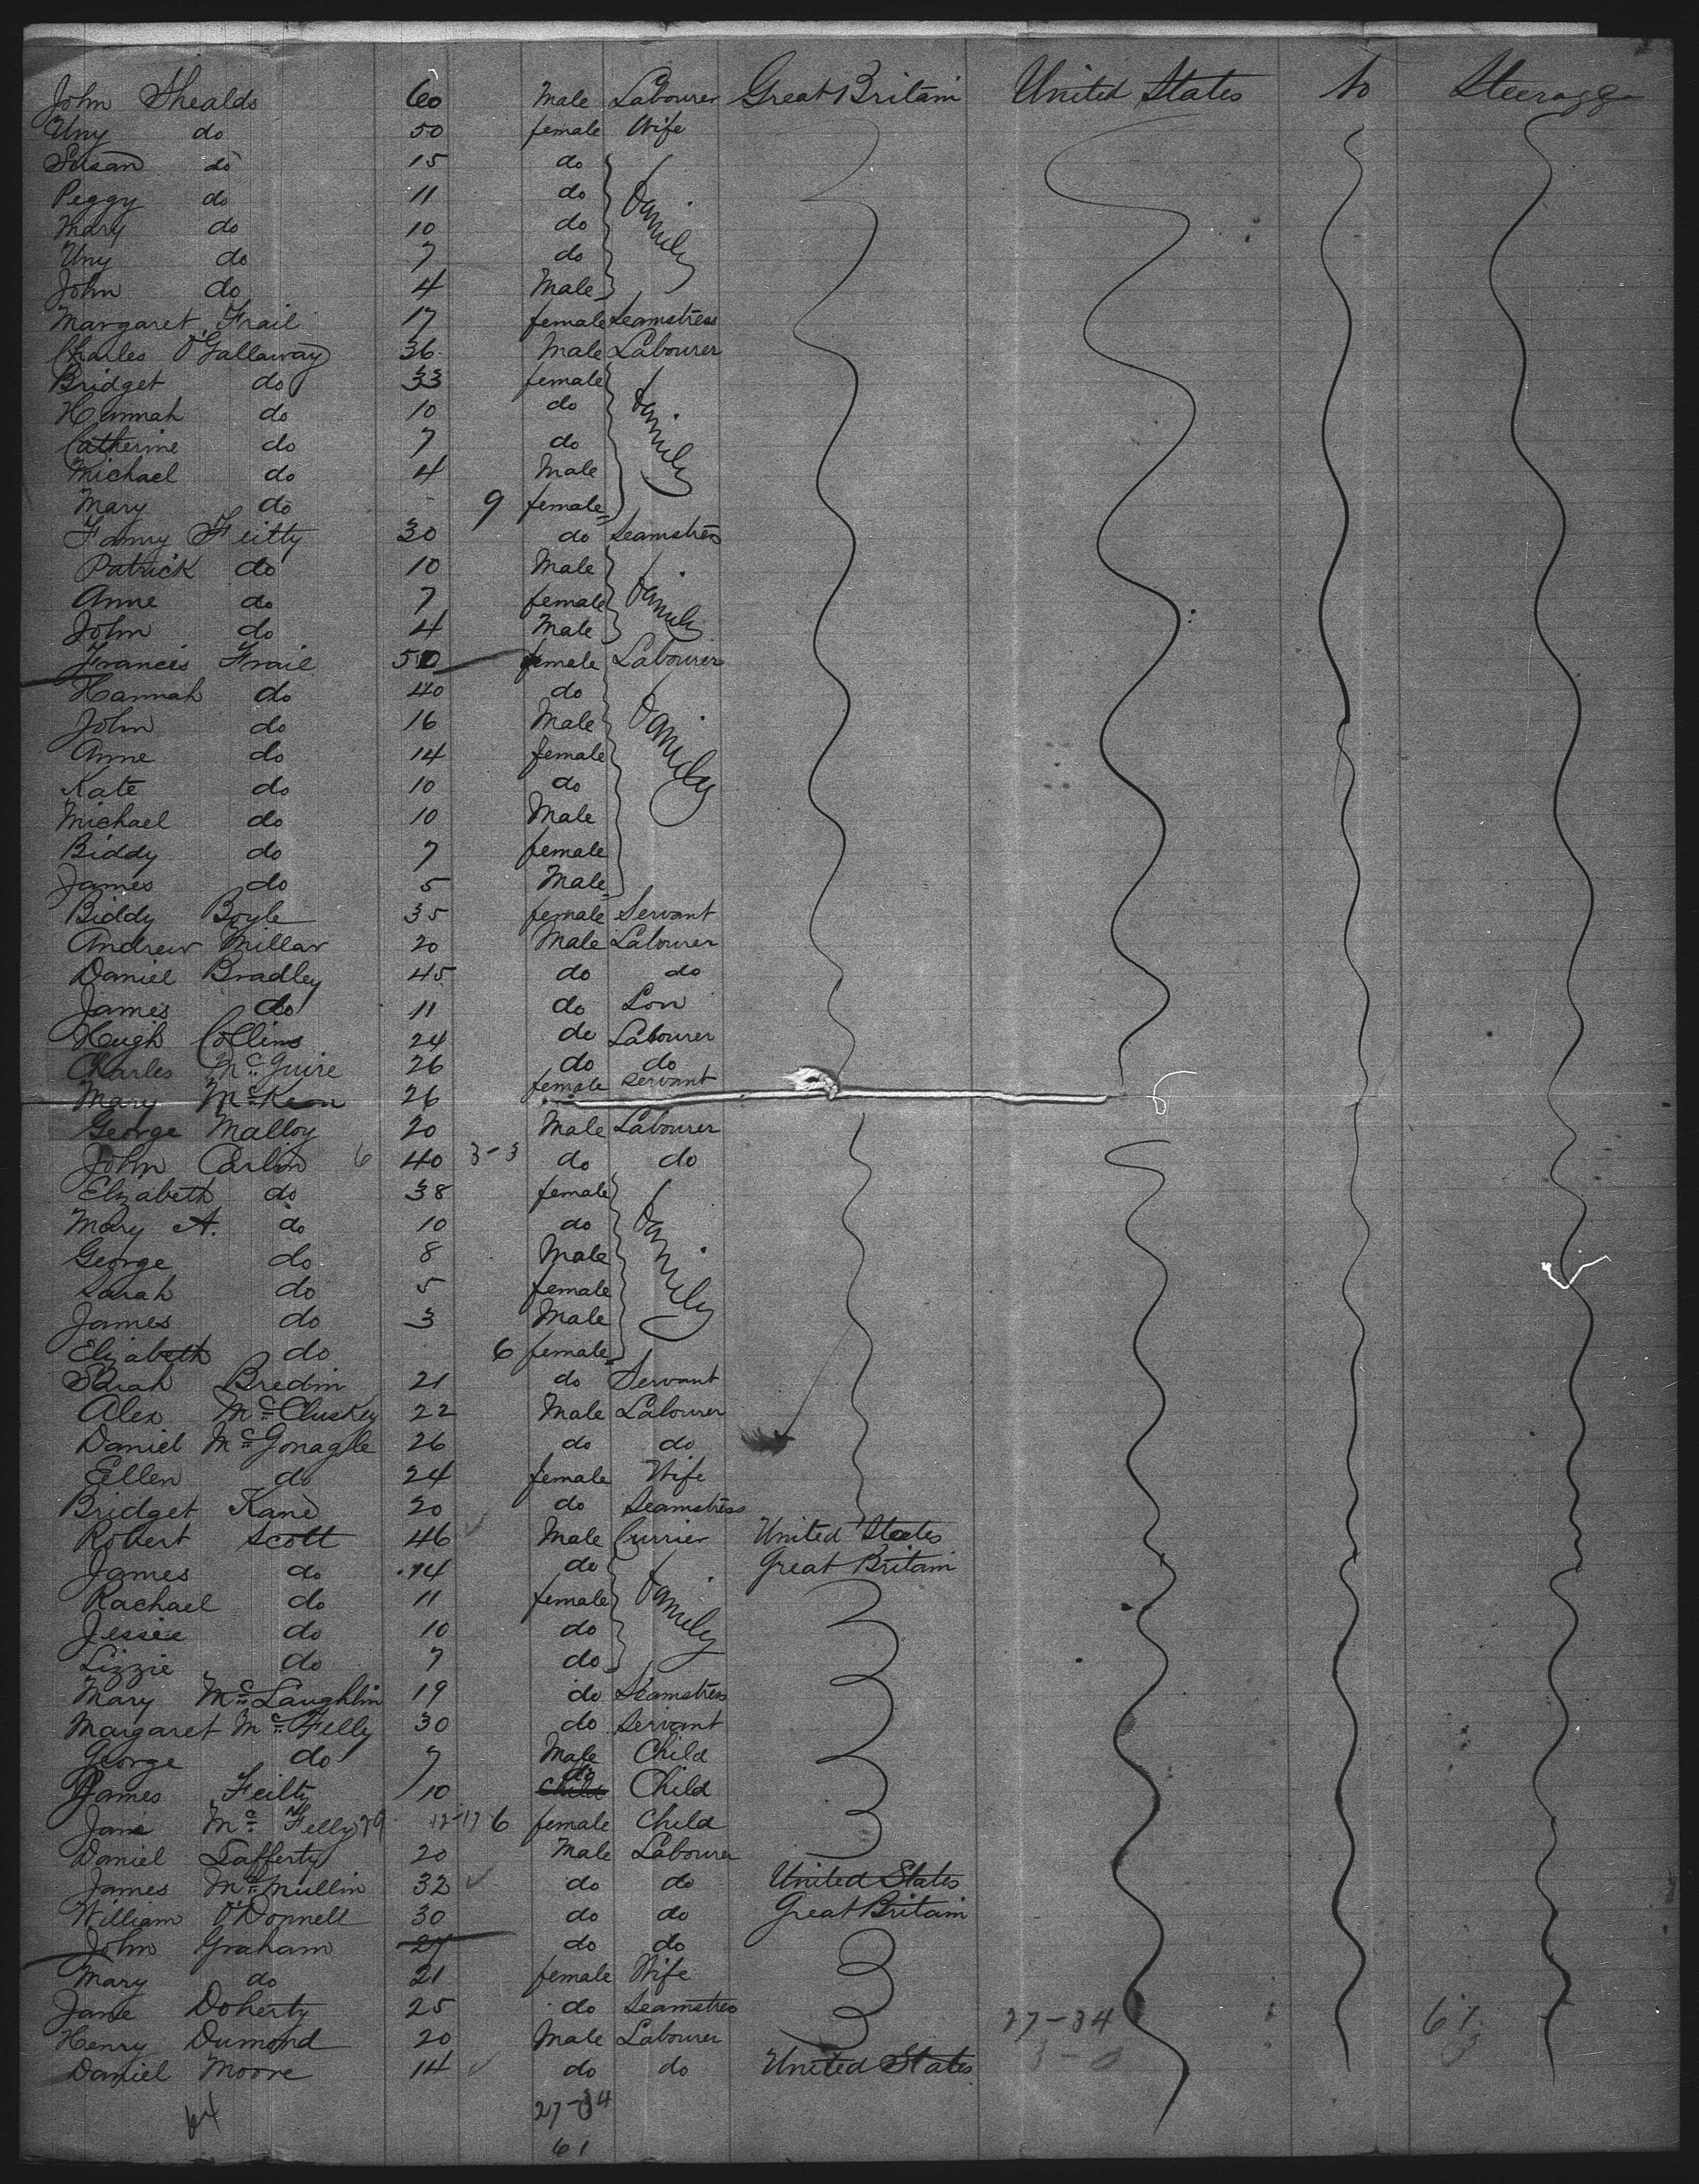 John Shealds 60 Male Labourer Great Britain United States No Steerage
Uny do 50 female Wife
Susan do 15 do
Peggy do 11 do Family
Mary do 10 do
Uny do 7 do
John do 4 Male
Margaret Frail 17 female Seamstress
Charles O'Gallaway 36 Male Labourer
Bridget do 33 female
Hannah do 10 do Family
Catherine do 7 do
Michael do 4 Male
Mary do 9 female
Fanny Feitty 30 do Seamstress
Patrick do 10 Male
Anne do 7 female Family
John do 4 Male
Francis Frail 50 female Labourer
Hannah do 40 do
John do 16 Male Family
Anne do 14 female
Kate do 10 do
Michael do 10 Male
Biddy do 7 female
James do 5 Male
Biddy Boyle 35 female Servant
Andrew Millar 20 Male Labourer
Daniel Bradley 45 do do
James do 11 do Son
Hugh Collins 24 do Labourer
Charles McGuire 26 do do
Mary McKeon 26 female servant
George Malloy 20 Male Labourer
John Carlin 6 40 3-3 do do
Elizabeth do 38 female
Mary A. do 10 do Family
George do 8 Male
Sarah do 5 female
James do 3 Male
Elizabeth do 6 female
Sarah Bredin 21 do Servant
Alex McCluskey 22 Male Labourer
Daniel McGonagle 26 do do
Ellen do 24 female Wife
Bridget Kane 20 do Seamstress
Robert Scott 46 Male Currier United States
James do 14 do Great Britain
Rachael do 11 female Family
Jessie do 10 do
Lizzie do 7 do
Mary McLaughlin 19 do Seamstress
Margaret McFelly 30 do servant
George do 7 Male Child
James Feilty 10 do Child Child
Jane McFelly 6 female Child
Daniel Lafferty 20 Male Labourer
James McMullin 32 do do United States
William O'Donnell 30 do do Great Britain
John Graham 27 do do
Mary do 21 female Wife
Jane Doherty 25 do Seamstress 27-34 61
Henry Dumond 20 Male Labourer 3-0 3
Daniel Moore 14 do do United States
64 27-34
61